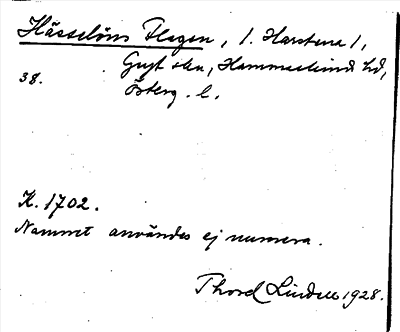 Hässelöns Flagen, l. Harstena 1,
Gryt skn, Hammarkinds hd,
38.
Österg. l.
K. 1702.
Namnet användes ej numera.
Thord Lindell 1928.